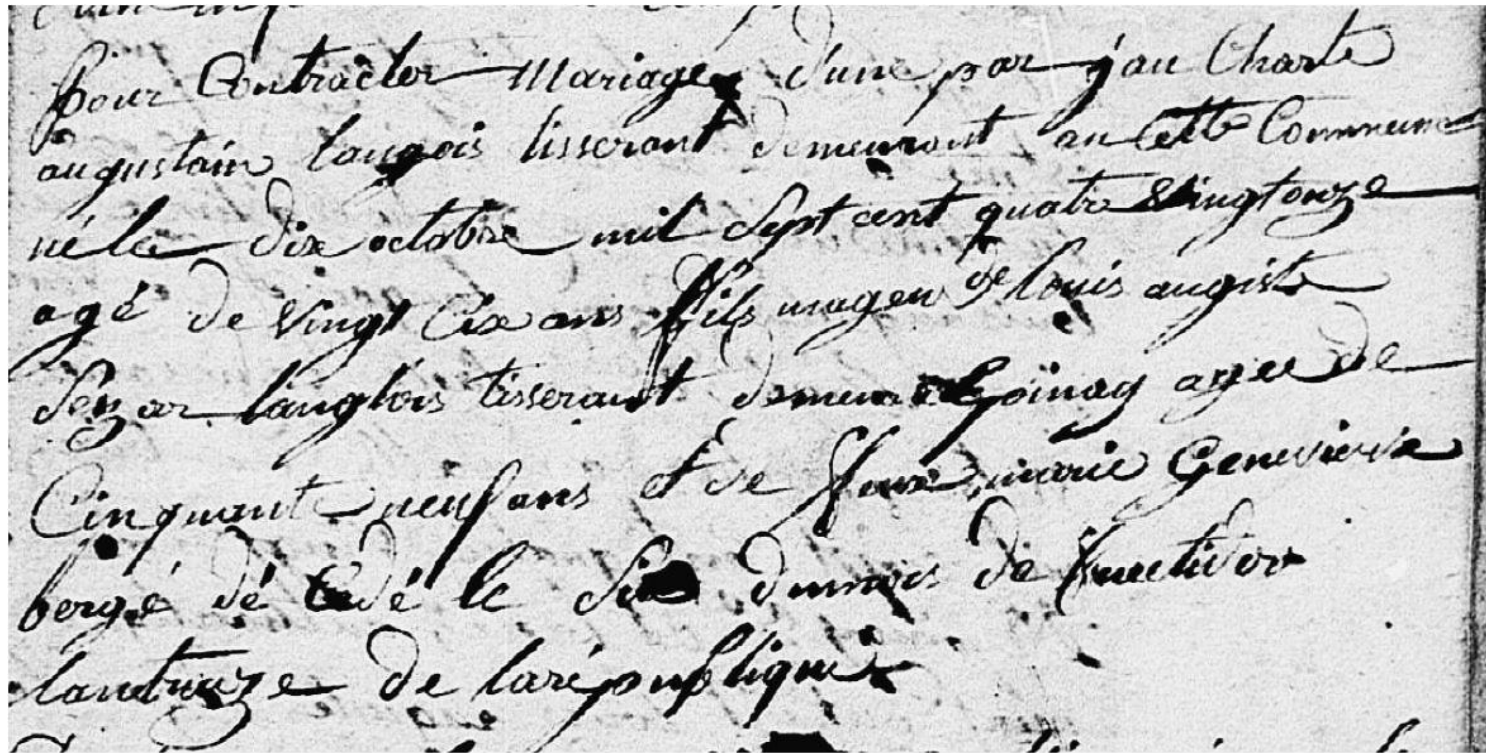 pour Contracter mariage d'une par jau Charle
augustain langois tisserant demeurant au Cette Commune
né le dix octobre mil Sept cent quatre Vingt onze
agé de Vingt Cix ans fils mageur de louis augiste
Sezar langlois tisserant demeur Epinay agee de
Cinquante neuf ans et de feux marie Genevieve
bergé dé Cedé le Six dumois de fructidor
lantreize de larépublique